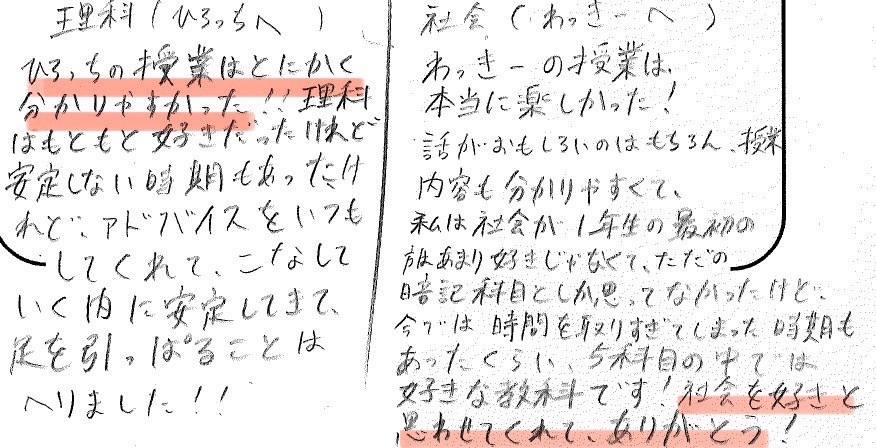 理科(ひろっちへ)
ひろっちの授業はとにかく
分かりやすかった!!理科
はもともと好きだったけれど
安定しない時期もあったけ
れど、アドバイスをいつも
してくれて、こなして
いく内に安定してきて、
足を引っぱることは
へりました!!
社会(わっきーへ)
わっきーの授業は、
本当に楽しかった!
話がおもしろいのはもちろん、授業
内容も分かりやすくて、
私は社会が1年生の最初の
方はあまり好きじゃなくて、ただの
暗記科目としか思ってなかったけど、
今では時間を取りすぎてしまった時期も
あったくらい、5科目の中では
好きな教科です!社会を好きと
思わせてくれて、ありがとう!